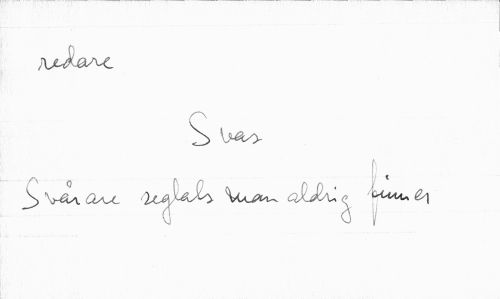 redare
Svas
Svårare seglats man aldrig finner